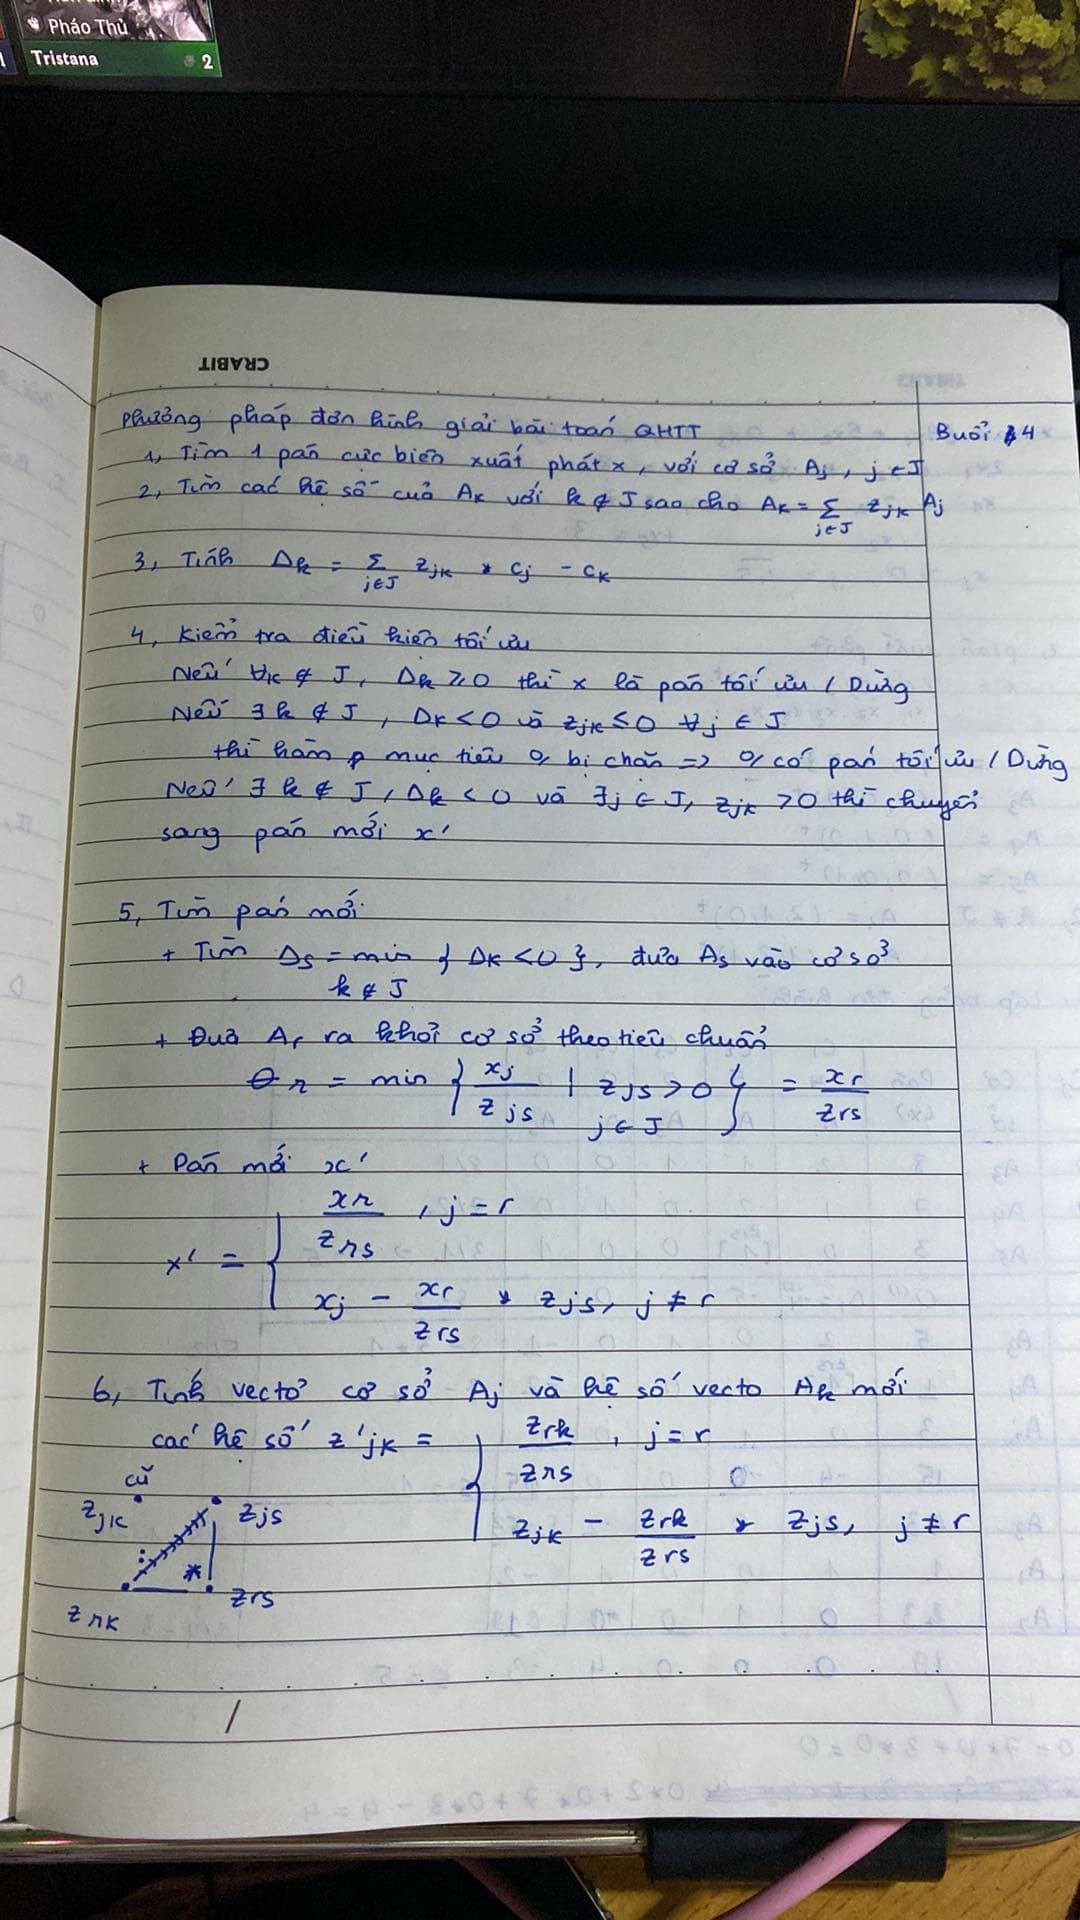 Pháo Thủ
Tristana 2
CRABIT
Phương pháp đơn hình giải bài toán QHTT
Buổi 4
1, Tìm 1 pán cực biên xuất phát x, với cơ sở Aj, j ∈ J
2, Tìm các hệ số của Ak với k ∉ J sao cho Ak = Σ_{j∈J} zjk Aj
3, Tính Δk = Σ_{j∈J} zjk * cj - ck
4, Kiểm tra điều kiện tối ưu
Nếu ∀k ∉ J, Δk ≥ 0 thì x là pán tối ưu / Dừng
Nếu ∃ k ∉ J, Δk < 0 và zjk ≤ 0 ∀j ∈ J
thì hàm mục tiêu % bị chặn => % có pán tối ưu / Dừng
Nếu ∃ k ∉ J, Δk < 0 và ∃j ∈ J, zjk > 0 thì chuyển
sang pán mới x'
5, Tìm pán mới
+ Tìm Δs = min { Δk < 0 }, đưa As vào cơ sở
k ∉ J
+ Đưa Ar ra khỏi cơ sở theo tiêu chuẩn
θr = min { xj / zjs | zjs > 0, j ∈ J } = xr / zrs
+ Pán mới x'
x' = { xr / zrs , j = r
xj - xr / zrs * zjs, j ≠ r
6, Tính vectơ cơ sở Aj và hệ số vecto Ak mới
các hệ số z'jk = { zrk / zrs , j = r
zjk - zrk / zrs * zjs, j ≠ r
cũ
zjk zjs
: *
zrk zrs